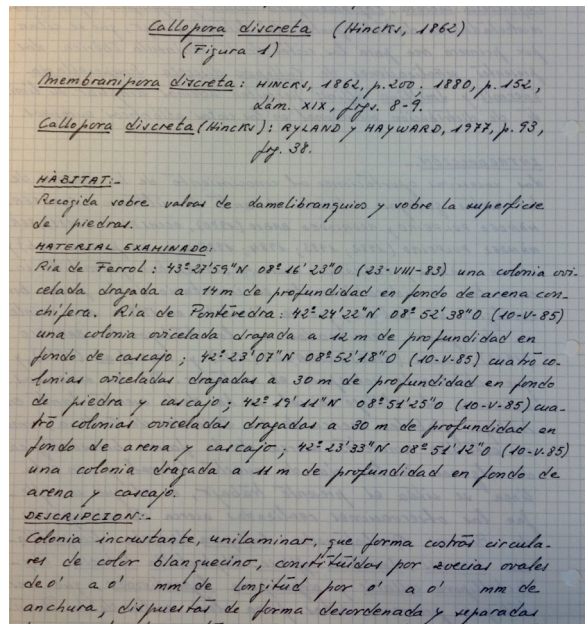 Callopora discreta (Hincks, 1862)
(Figura 1)
Membranipora discreta: HINCKS, 1862, p.200; 1880, p.152,
Lám. XIX, figs. 8-9.
Callopora discreta (Hincks): RYLAND y HAYWARD, 1977, p.93,
fig. 38.
HÀBITAT:-
Recogida sobre valvas de lamelibranquios y sobre la superficie
de piedras.
MATERIAL EXAMINADO:
Ría de Ferrol: 43º27'59"N 08º16'23"O (23-VIII-83) una colonia ovi-
celada dragada a 14m de profundidad en fondo de arena con-
chífera. Ría de Pontevedra: 42º24'22"N 08º52'38"O (10-V-85)
una colonia ovicelada dragada a 12 m de profundidad en
fondo de cascajo; 42º23'07"N 08º52'18"O (10-V-85) cuatro co-
lonias oviceladas dragadas a 30 m de profundidad en fondo
de piedra y cascajo; 42º19'11"N 08º51'25"O (10-V-85) cua-
tro colonias oviceladas dragadas a 30 m de profundidad en
fondo de arena y cascajo; 42º23'33"N 08º51'12"O (10-V-85)
una colonia dragada a 11 m de profundidad en fondo de
arena y cascajo.
DESCRIPCION:-
Colonia incrustante, unilaminar, que forma costras circula-
res de color blanquecino, constituidas por zoecias ovales
de 0' a 0' mm de longitud por 0' a 0' mm de
anchura, dispuestas de forma desordenada y separadas